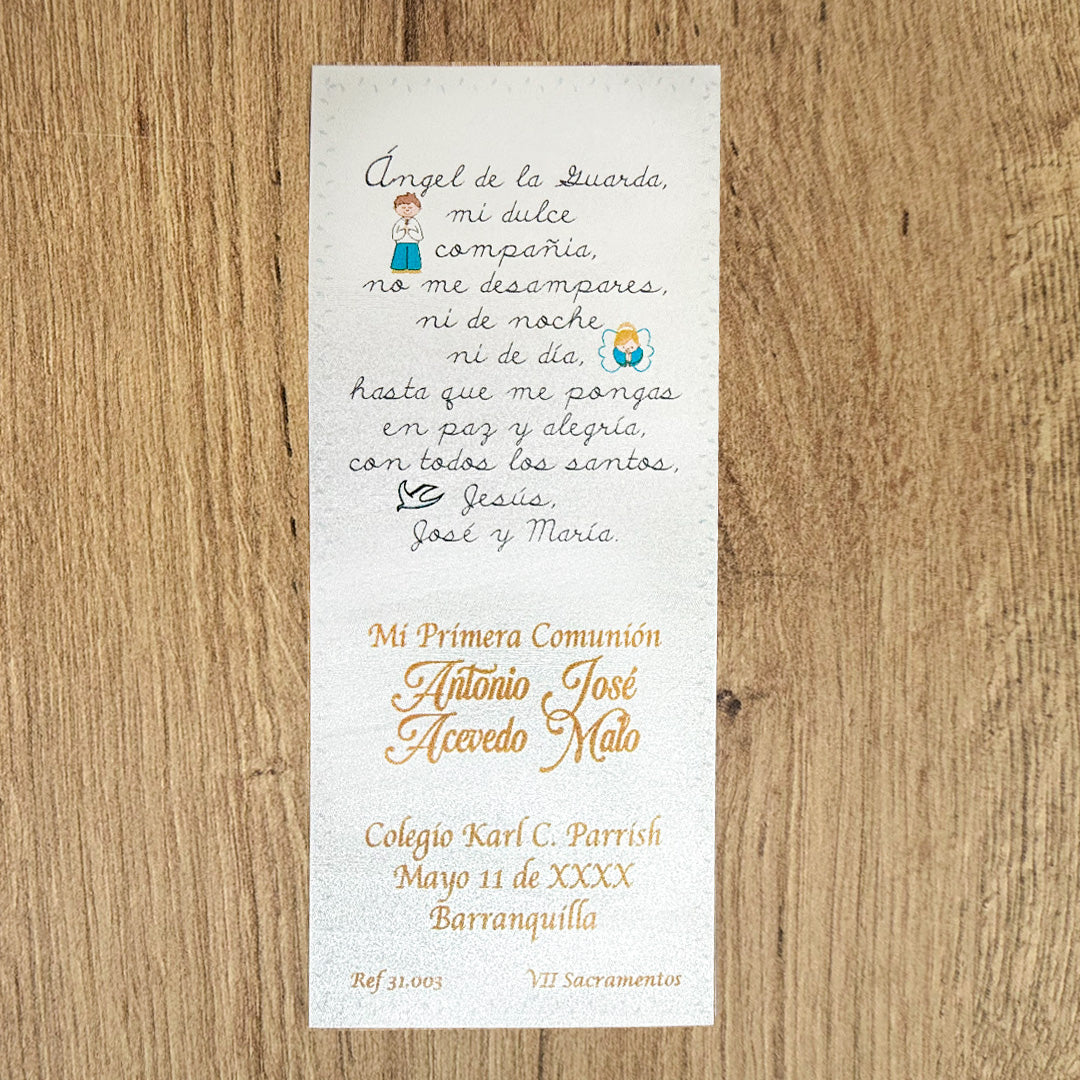 Ángel de la Guarda,
mi dulce
compañia,
no me desampares,
ni de noche
ni de día,
hasta que me pongas
en paz y alegría,
con todos los santos,
Jesús,
José y María.
Mi Primera Comunión
Antonio José
Acevedo Malo
Colegio Karl C. Parrish
Mayo 11 de XXXX
Barranquilla
Ref 31.003 VII Sacramentos